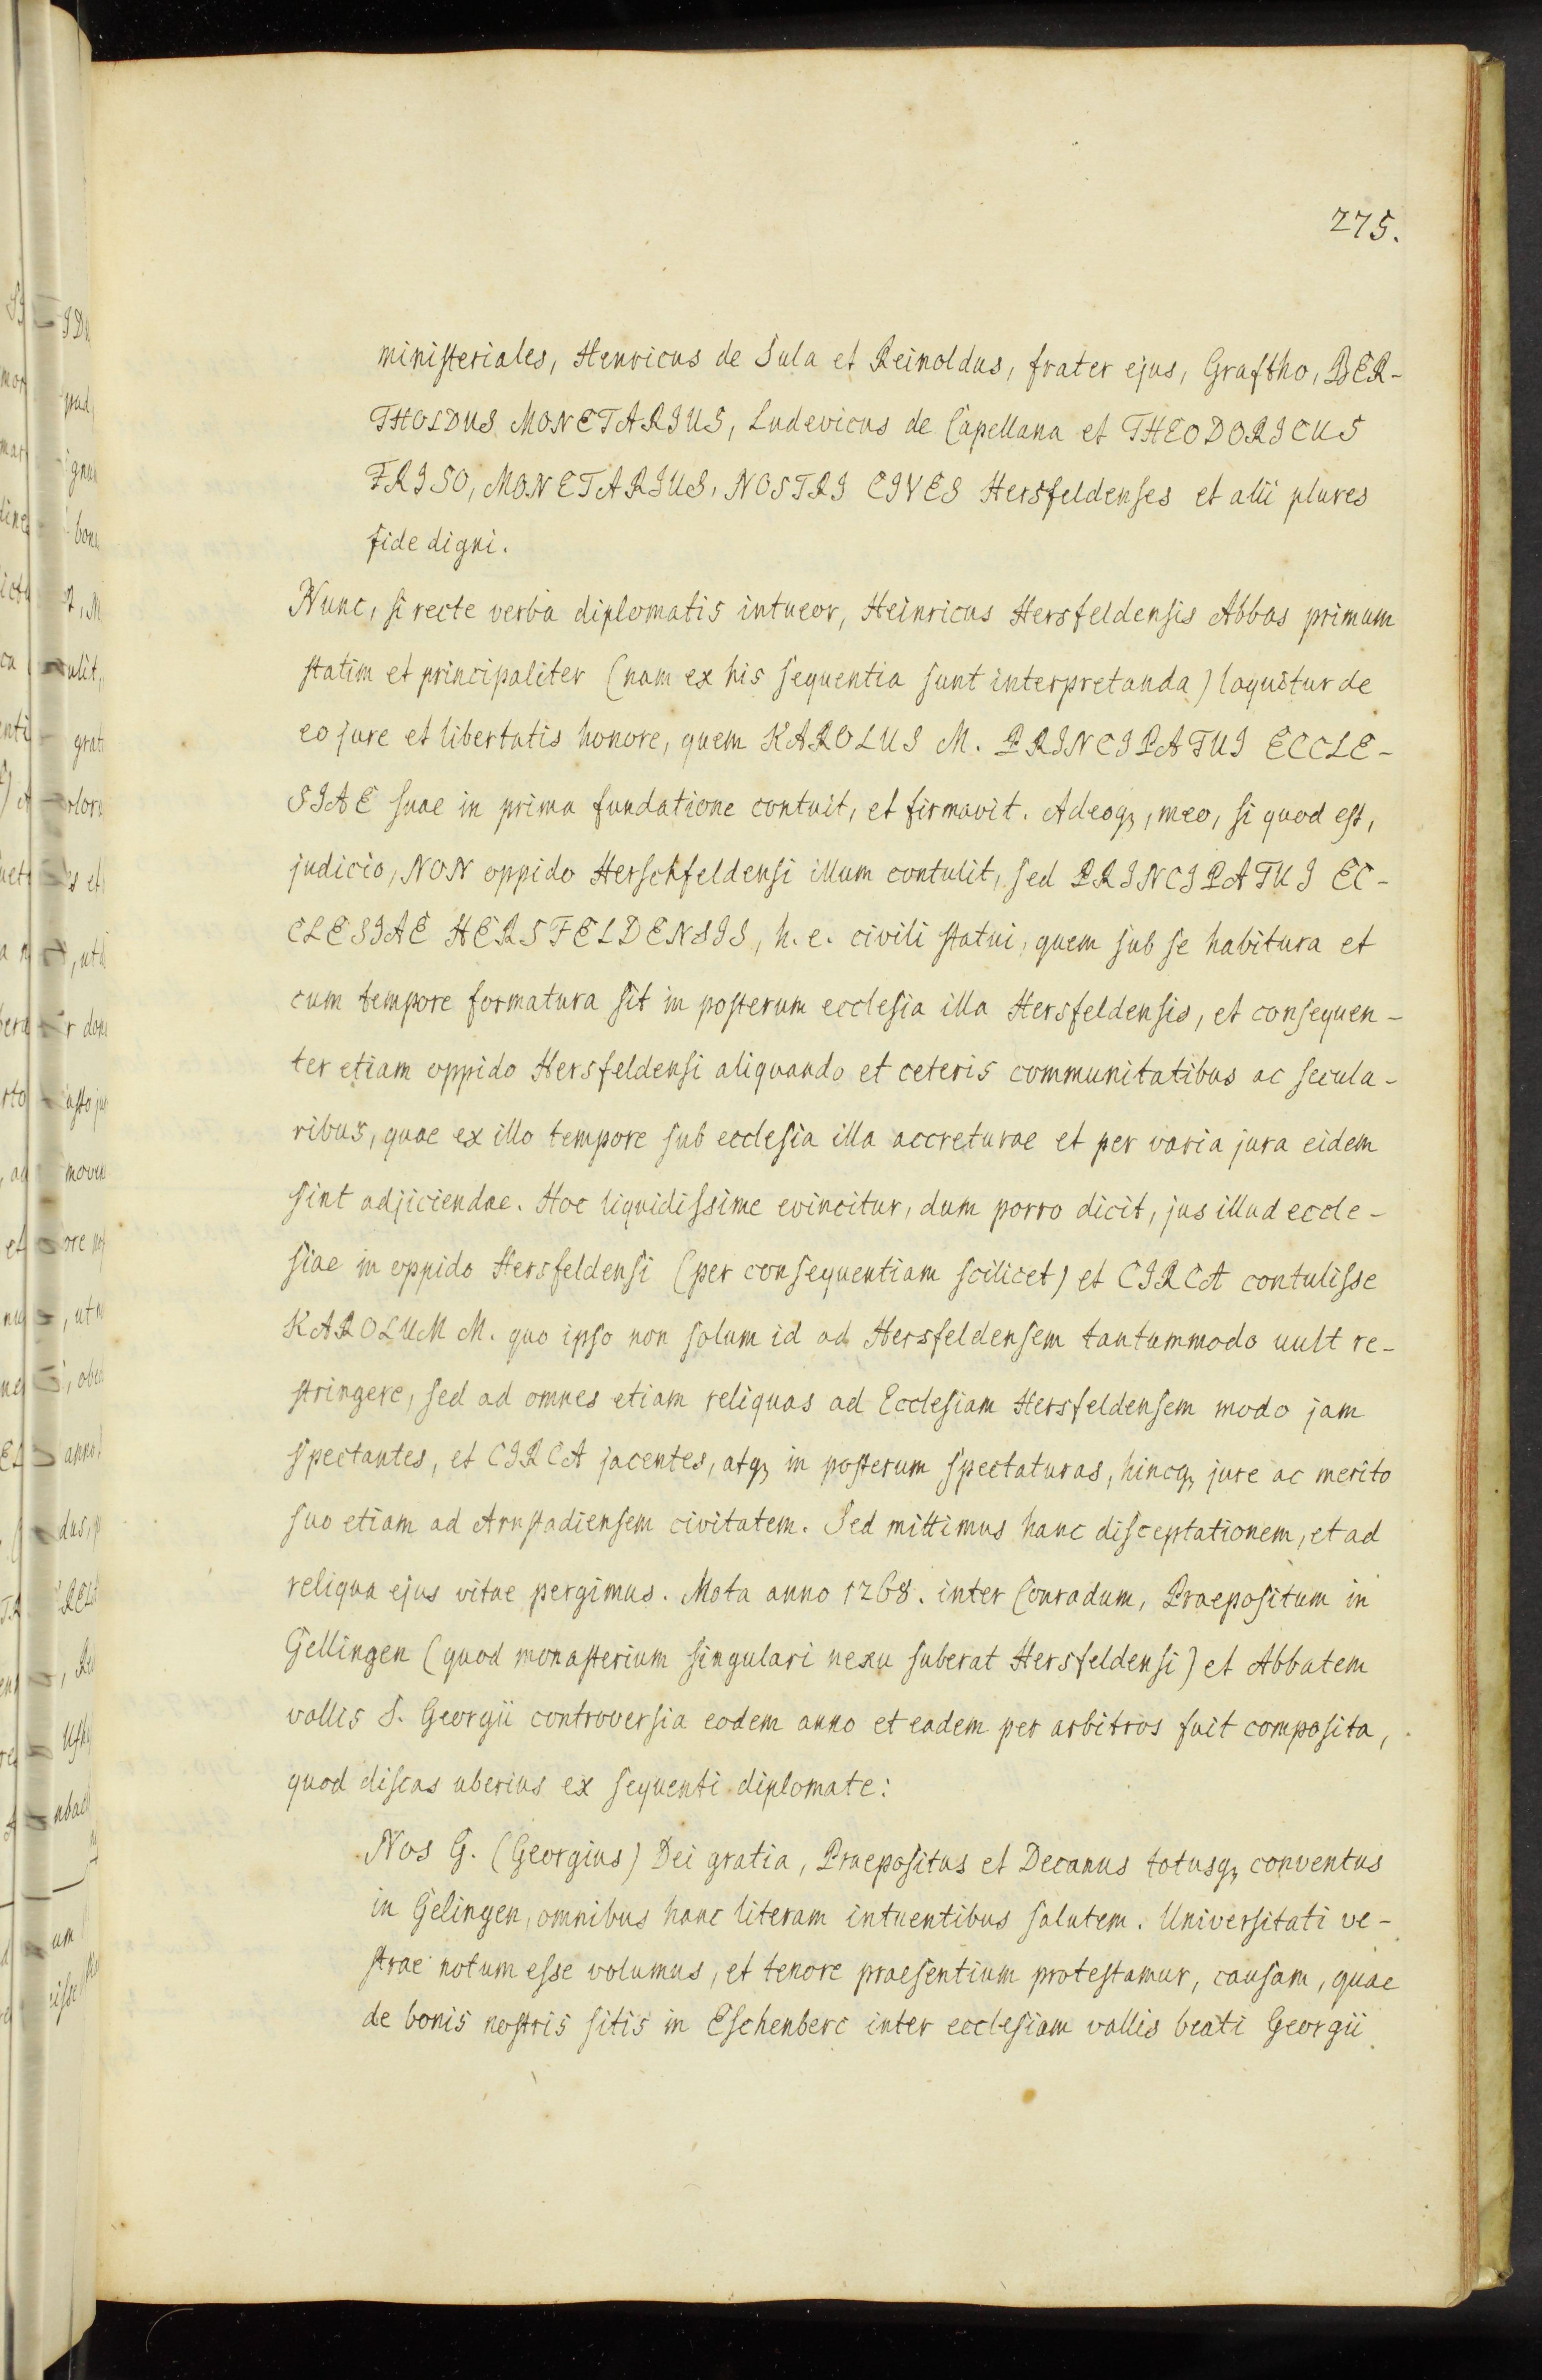 275.
ministeriales, Henricus de Sula et Reinoldus, frater ejus, Graftho, BER-
THOLDUS MONETARIUS, Ludevicus de Capellana et THEODORICUS
FRISO, MONETARIUS, NOSTRI CIVES Hersfeldenses et alii plures
fide digni.
Nunc, si recte verba diplomatis intueor, Heinricus Hersfeldensis Abbas primum
statim et principaliter (nam ex his sequentia sunt interpretanda) loquitur de
eo jure et libertatis honore, quem KAROLUS M. PRINCIPATUI ECCLE-
SIAE suae in prima fundatione contuit, et firmavit. Adeoq3, meo, si quod est,
judicio, NON oppido Herschfeldensi illum contulit, sed PRINCIPATUI EC-
CLESIAE HERSFELDENSIS, h. e. civili statui, quem sub se habitura et
cum tempore formatura sit in posterum ecclesia illa Hersfeldensis, et consequen-
ter etiam oppido Hersfeldensi aliquando et ceteris communitatibus ac secula-
ribus, quae ex illo tempore sub ecclesia illa accreturae et per varia jura eidem
sint adjiciendae. Hoc liquidissime evincitur, dum porro dicit, jus illud eccle-
siae in oppido Hersfeldensi (per consequentiam scilicet) et CIRCA contulisse
KAROLUM M. quo ipso non solum id ad Hersfeldensem tantummodo uult re-
stringere, sed ad omnes etiam reliquas ad Ecclesiam Hersfeldensem modo jam
spectantes, et CIRCA jacentes, atq3 in posterum spectaturas, hincq3 jure ac merito
suo etiam ad Arnstadiensem civitatem. Sed mittimus hanc disceptationem, et ad
reliqua ejus vitae pergimus. Mota anno 1268. inter Conradum, Praepositum in
Gellingen (quod monasterium singulari nexu suberat Hersfeldensi) et Abbatem
vallis S. Georgii controversia eodem anno et eadem per arbitros fuit composita,
quod discas uberius ex sequenti diplomate:
Nos G. (Georgius) Dei gratia, Praepositus et Decanus totusq3 conventus
in Gelingen, omnibus hanc literam intuentibus salutem. Universitati ve-
strae notum esse volumus, et tenore praesentium protestamur, causam, quae
de bonis nostris sitis in Eschenberc inter ecclesiam vallis beati Georgii